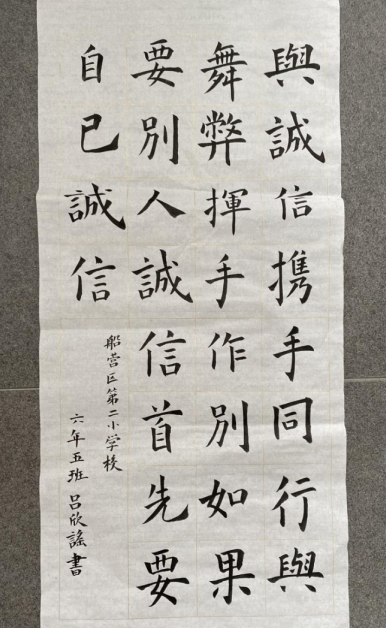 與誠信携手同行與
舞弊揮手作別如果
要別人誠信首先要
自己誠信
船营区第二小学校
六年五班 吕欣謠書